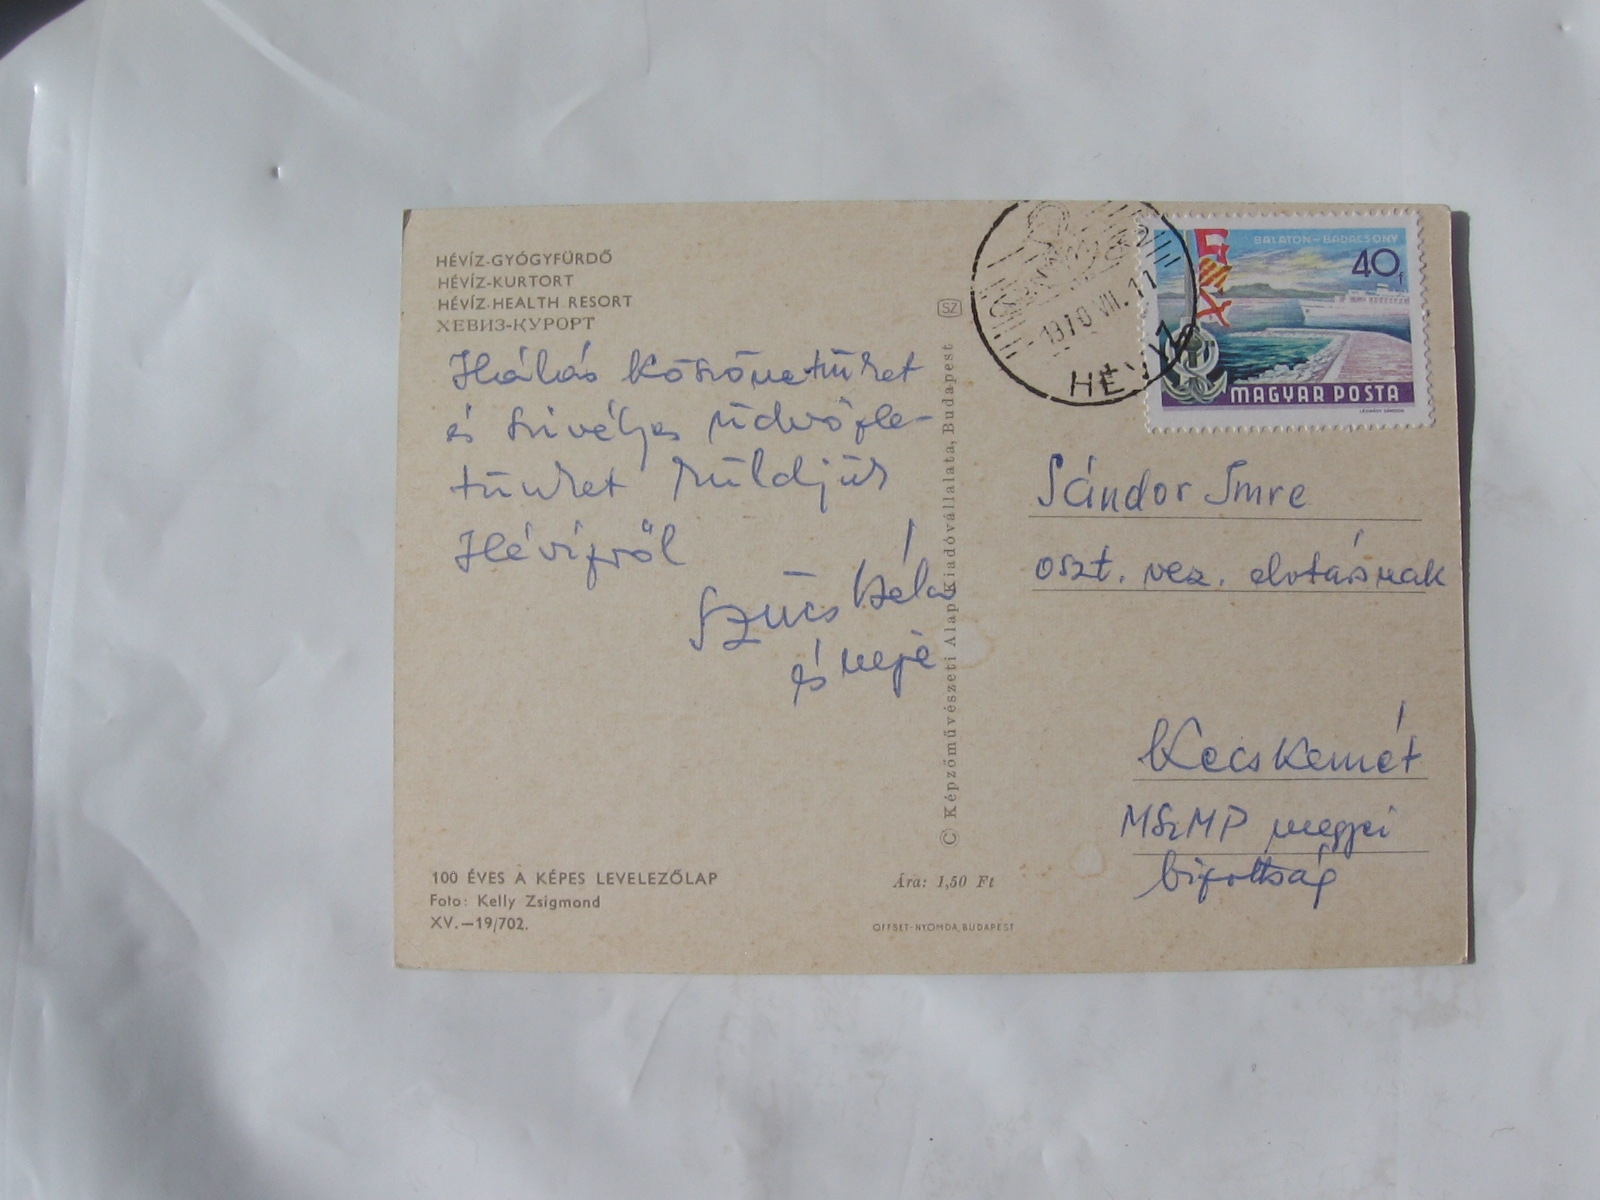 HÉVÍZ-GYÓGYFÜRDŐ
HÉVÍZ-KURTORT
HÉVÍZ-HEALTH RESORT
ХЕВИЗ-КУРОРТ
Hálás köszönetünket
és szivélyes üdvözle-
tünket küldjük
Hévízről
Szűcs Béla
és neje
100 ÉVES A KÉPES LEVELEZŐLAP
Foto: Kelly Zsigmond
XV.—19/702.
SZ
© Képzőművészeti Alap Kiadóvállalata, Budapest
Ára: 1,50 Ft
OFFSET-NYOMDA, BUDAPEST
1970 VII. 11
HÉVÍZ
BALATON-BADACSONY
40f
MAGYAR POSTA
Sándor Imre
oszt. vez. elvtársnak
Kecskemét
MSzMP megyei
bizottság